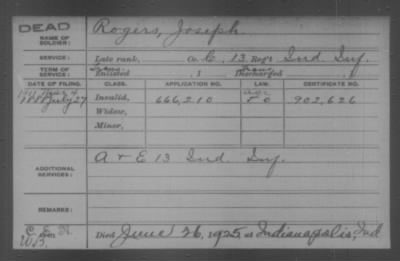 DEAD
NAME OF SOLDIER: Rogers, Joseph
SERVICE: Late rank, Co. C, 13 Reg't Ind. Inf.
TERM OF SERVICE: Enlisted , 1 Discharged , 1
DATE OF FILING. CLASS. APPLICATION NO. LAW. CERTIFICATE NO.
1888 July 27 Invalid, 666,210 902,626
Widow,
Minor,
ADDITIONAL SERVICES: A & E 13 Ind. Inf.
REMARKS:
Died June 26, 1925, at Indianapolis, Ind